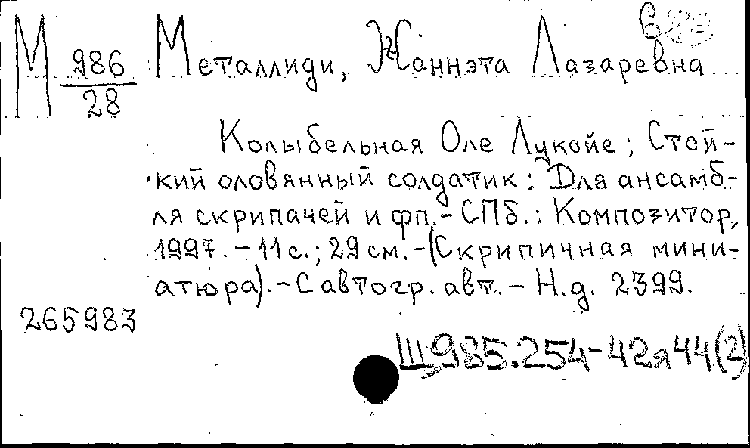 М 986/28 Металлиди, Жаннэта Лазаревна
Колыбельная Оле Лукойе; Стой-
кий оловянный солдатик: Для ансамб-
ля скрипачей и фп. - СПб.: Композитор,
1997. - 11 с.; 29 см. - (Скрипичная мини-
атюра). - С автогр. авт. - Н.д. 2399.
265983
Щ985.254-42я44(2)